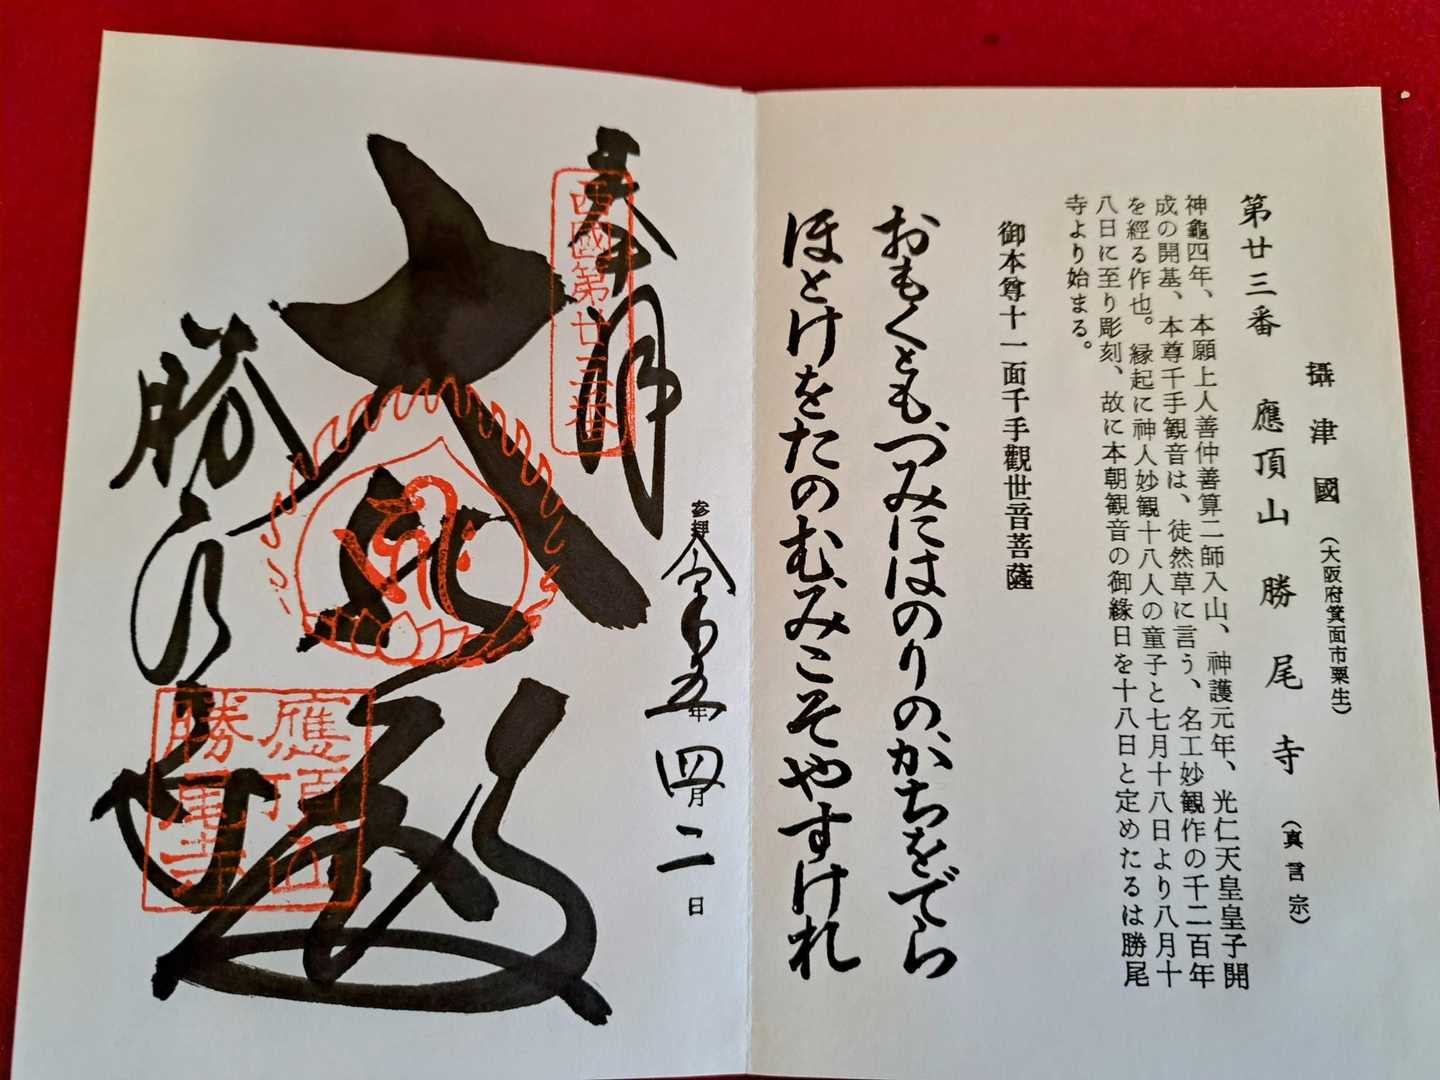 第廿三番 應頂山 勝尾寺 (真言宗)
攝津國 (大阪府箕面市粟生)
神龜四年、本願上人善仲善算二師入山、神護元年、光仁天皇皇子開
成の開基、本尊千手観音は、徒然草に言う、名工妙観作の千二百年
を經る作也。縁起に神人妙観十八人の童子と七月十八日より八月十
八日に至り彫刻、故に本朝観音の御緣日を十八日と定めたるは勝尾
寺より始まる。
御本尊十一面千手觀世音菩薩
おもくともつみにはのりのかちをでら
ほとけをたのむみこそやすけれ
奉拝
西國第廿三番
参拝令和五年四月二日
大悲殿
勝尾寺
應頂山
勝尾寺